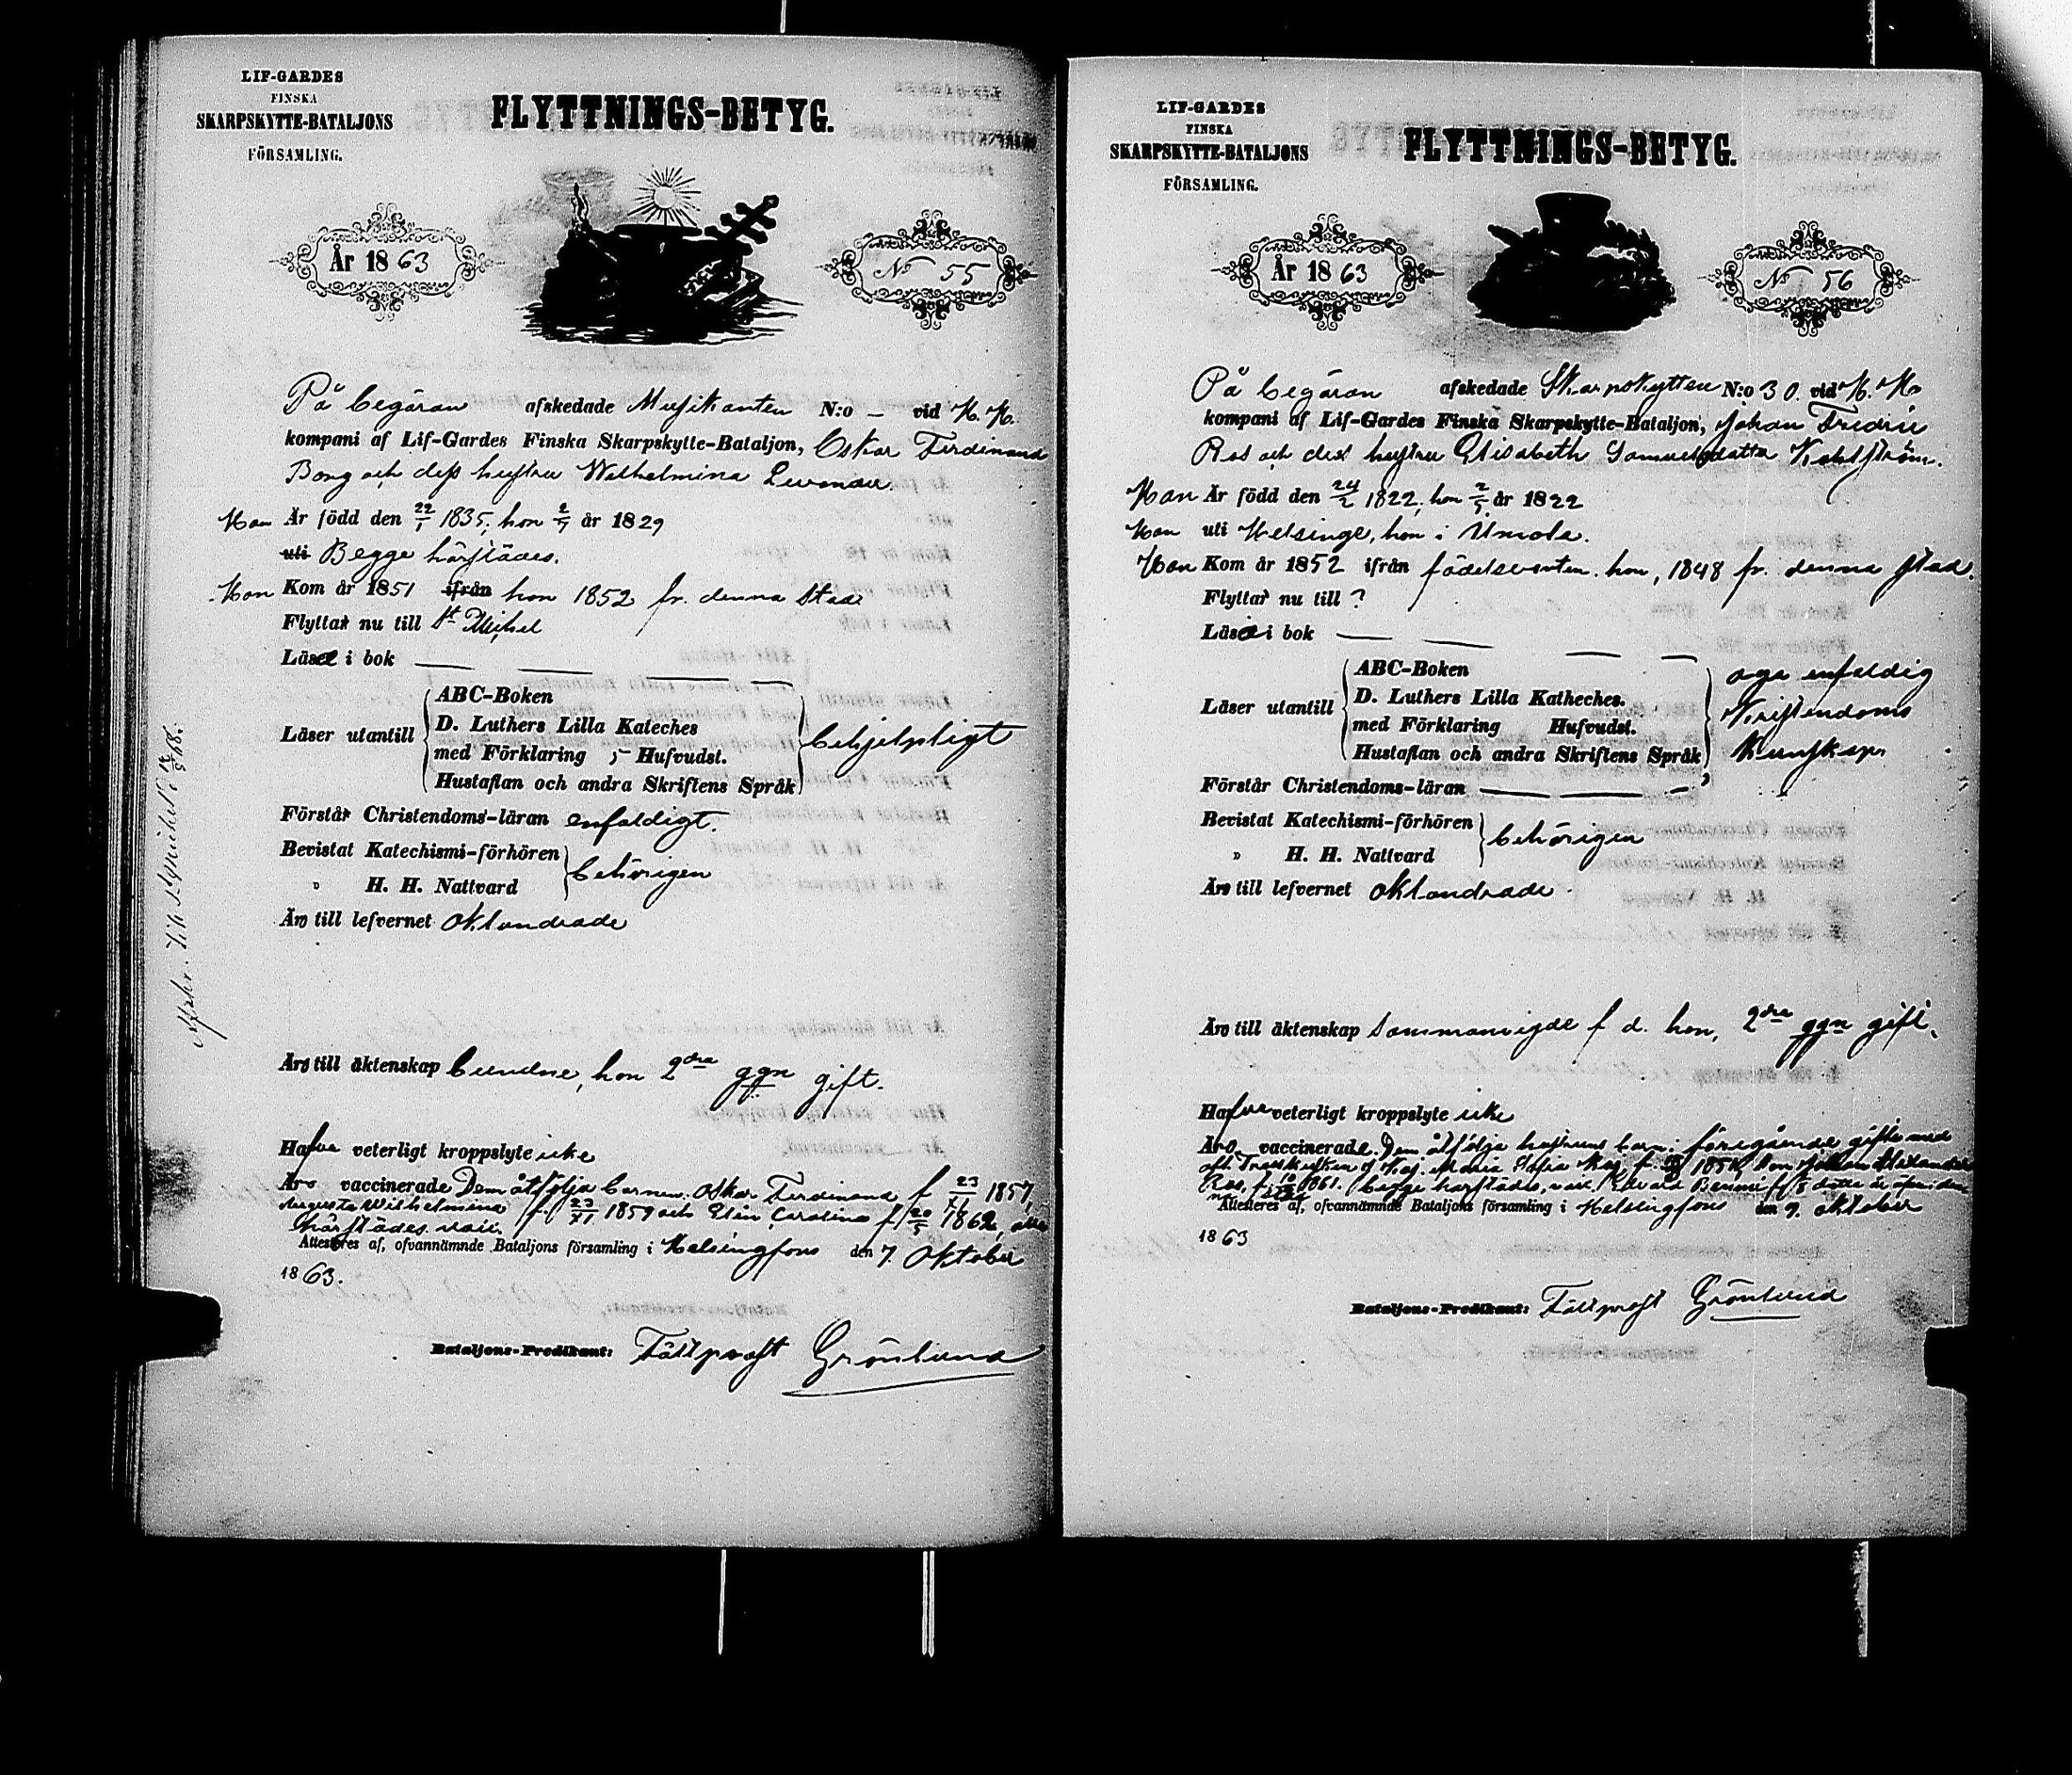 LIF-GARDES
FINSKA
SKARPSKYTTE-BATALJONS
FÖRSAMLING.
FLYTTNINGS-BETYG.
År 1863
No 55
På begäran afskedade Musikanten N:o – vid H. K.
kompani af Lif-Gardes Finska Skarpskytte-Bataljon, Oskar Ferdinand
Borg och dess hustru Wilhelmina
Han Är född den 22/1 1835, hon 2/5 år 1829
uti Begge härstädes.
Han Kom år 1851 ifrån hon 1852 fr. denna stad
Flyttar nu till St Michel
Läser i bok — — — —
Läser utantill
ABC-Boken
D. Luthers Lilla Kateches
med Förklaring 5 Hufvudst.
Hustaflan och andra Skriftens Språk
behjelpligt
Förstår Christendoms-läran enfaldigt.
Bevistat Katechismi-förhören
" H. H. Nattvard
behörigen
Äro till lefvernet oklandrade
Äro till äktenskap bundne, hon 2dra ggn gift.
Hafva veterligt kroppslyte icke
Äro vaccinerade Dem åtfölja barnen: Oskar Ferdinand f 23/11 1857,
Augusta Wilhelmina f. 1859 och Elin Carolina f 20/5 1862, alla
härstädes, vacc.
Attesteres af, ofvannämnde Bataljons församling i Helsingfors den 7. Oktober
1863.
Bataljons-Predikant: Fältprost Grönlund
LIF-GARDES
FINSKA
SKARPSKYTTE-BATALJONS
FÖRSAMLING.
FLYTTNINGS-BETYG.
År 1863
No 56
På begäran afskedade Skarpskytten N:o 30. vid H. K
kompani af Lif-Gardes Finska Skarpskytte-Bataljon, Johan Fredric
Ros och dess hustru Elisabeth Samuelsdotter
Han Är född den 24/2 1822, hon 2/5 år 1822
Han uti Helsinge, hon i Umola.
Han Kom år 1852 ifrån födelseorten. hon, 1848 fr. denna stad.
Flyttar nu till ?
Läser i bok — — — —
Läser utantill
ABC-Boken
D. Luthers Lilla Katheches.
med Förklaring Hufvudst.
Hustaflan och andra Skriftens Språk
äga enfaldig
Kristendoms
kunskap.
Förstår Christendoms-läran — — —
Bevistat Katechismi-förhören
" H. H. Nattvard
behörigen
Äro till lefvernet oklandrade
Äro till äktenskap sammanvigde f d. hon, 2dra ggn gift.
Hafva veterligt kroppslyte icke
Äro vaccinerade. Dem åtfölja hustruns barn i föregående gifte med
Maria Sofia Johan Alexander
Ros, f. 1861. begge härstädes, vacc.
Attesteres af, ofvannämnde Bataljons församling i Helsingfors den 9. Oktober
1863
Bataljons-Predikant: Fältprost Grönlund